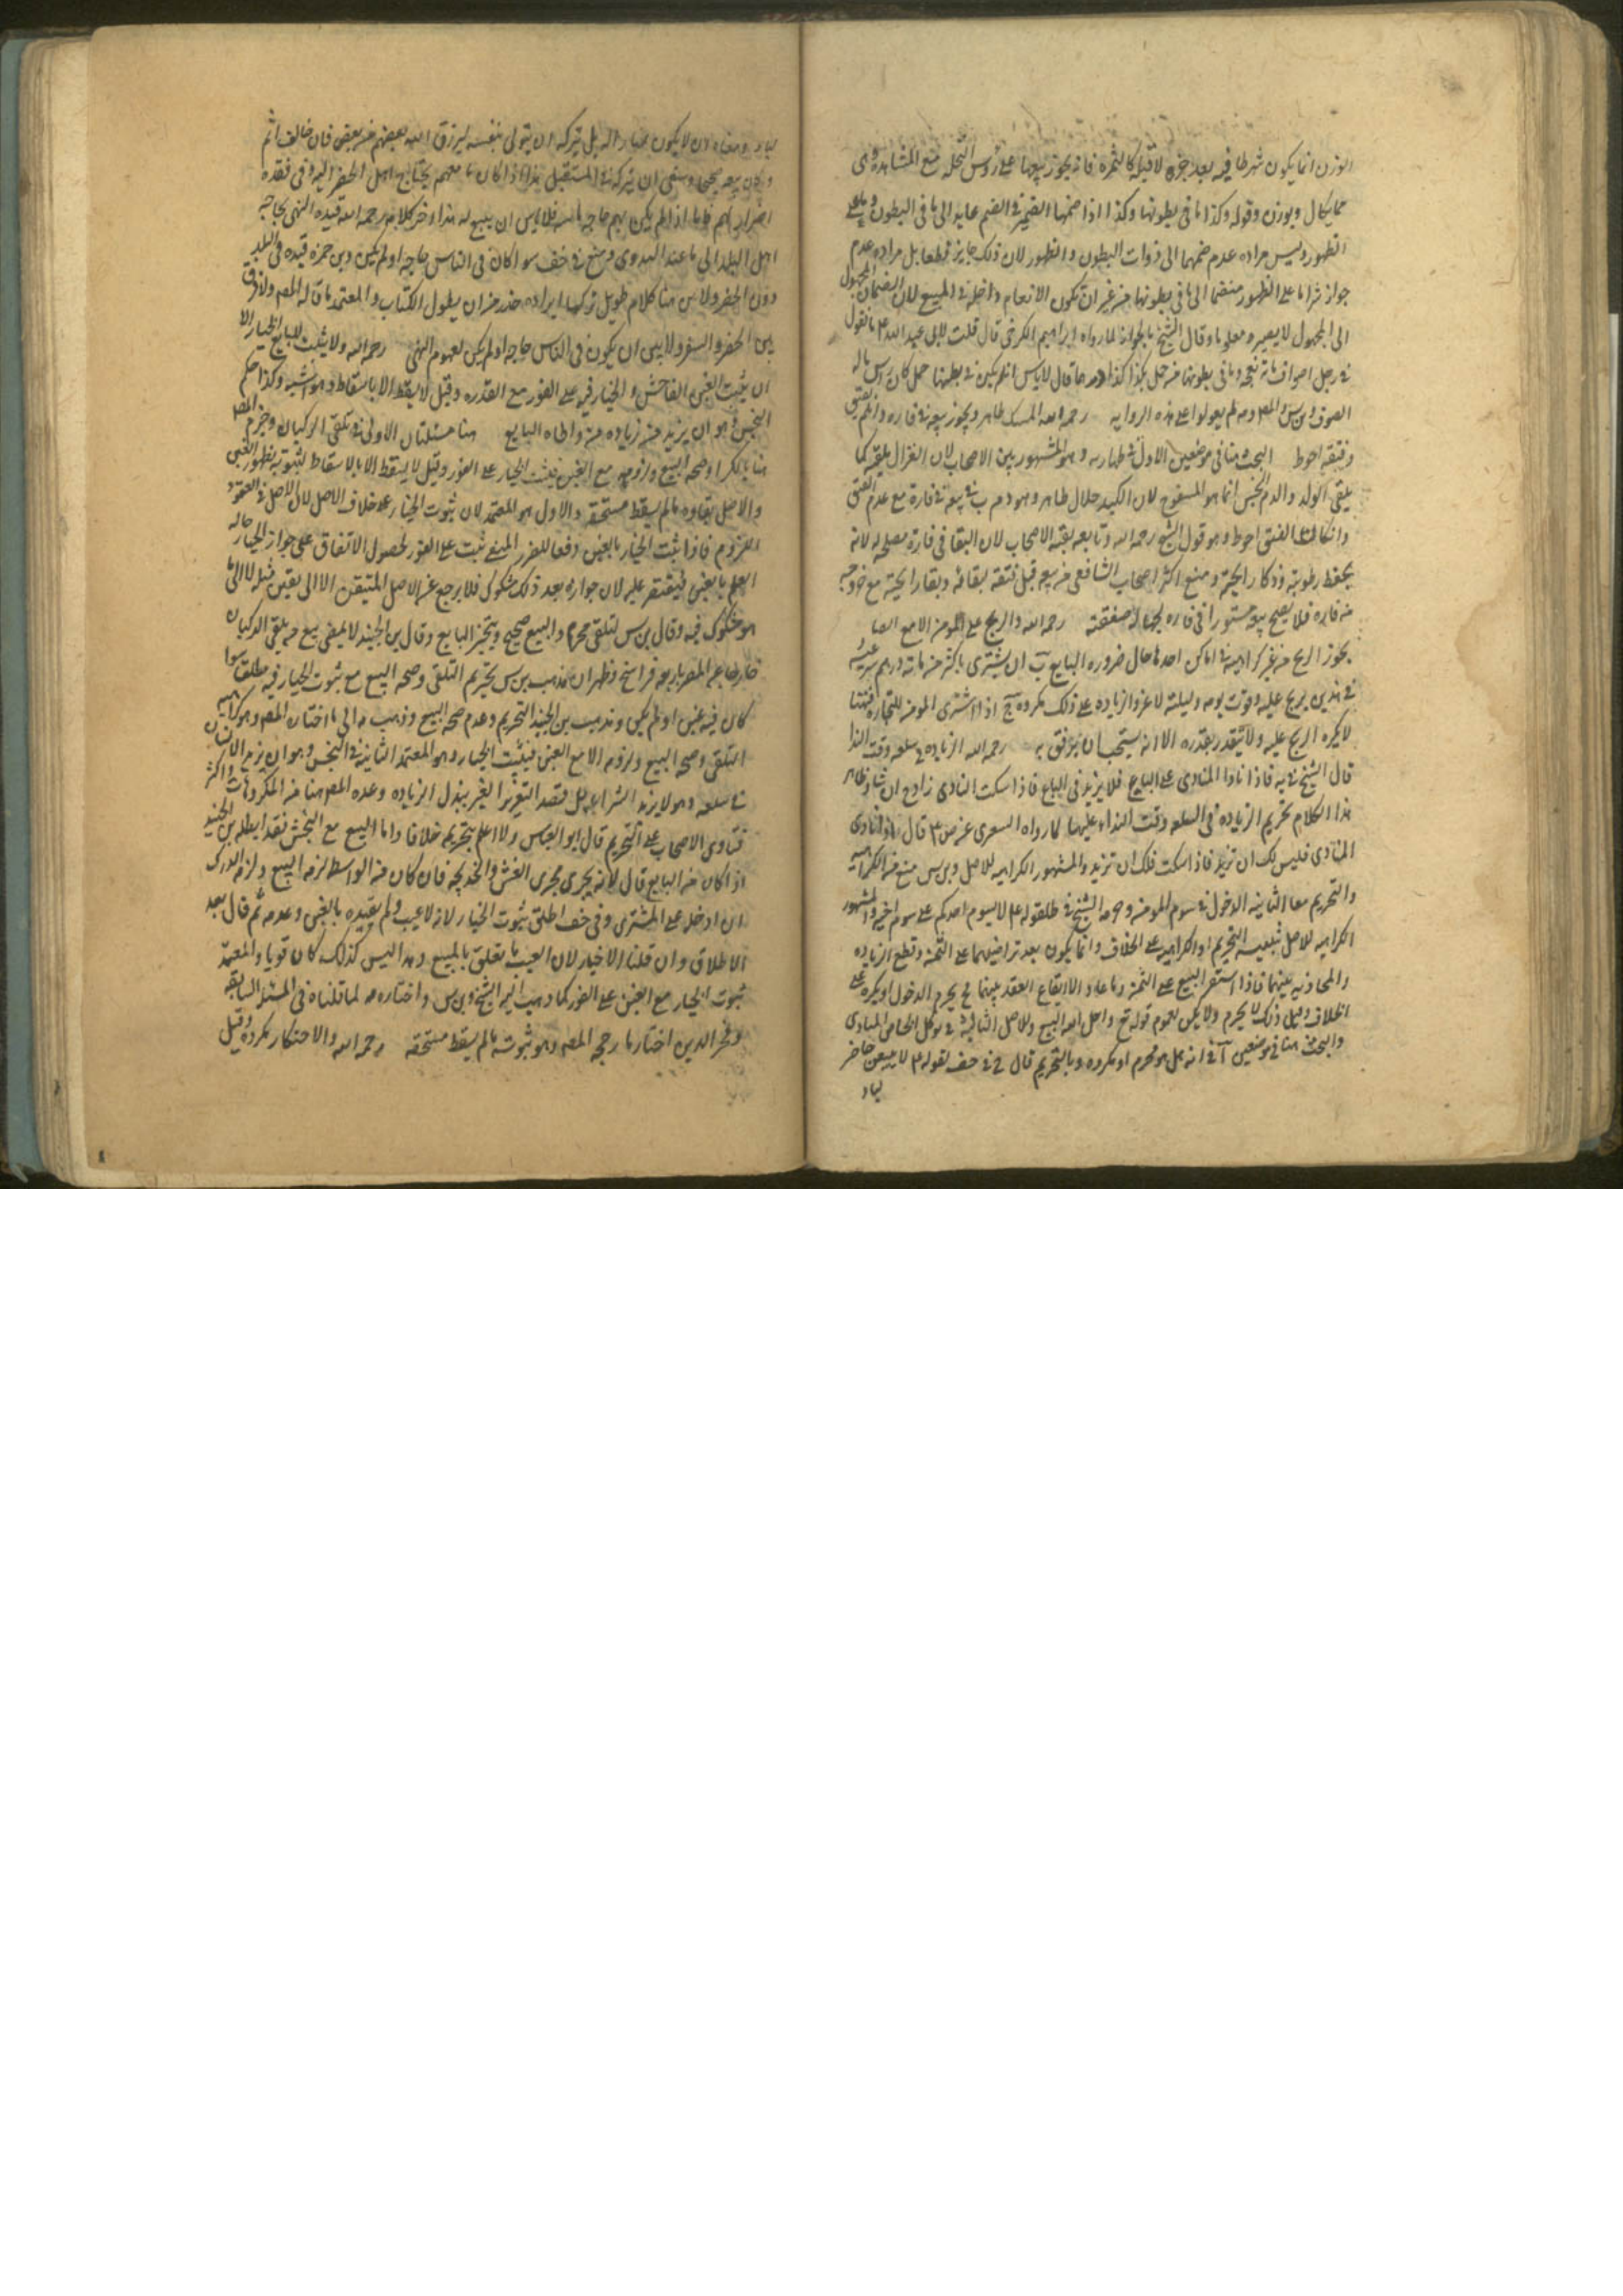 الوزن انما يكون شرطا فيه بعد جزه لا قبله كالثمره فانه يجوز بيعها على رؤس النخل مع المشاهده وهى
مما يكال ويوزن وقوله وكذا ما فى بطونها وكذا اذا ضمهما الضمير فى الضم عايد الى ما فى البطون وما على
الظهور وليس مراده عدم ضمهما الى ذوات البطون والظهور لان ذلك جايز قطعا بل مراده عدم
جواز شرا ما على الظهور منضما الى ما فى بطونها من غير ان تكون الانعام داخله فى المبيع لان انضمام المجهول
الى المجهول لا يصيره معلوما وقال الشيخ بالجواز لما رواه ابراهيم الكرخى قال قلت لابى عبد الله ع ما تقول
فى رجل اصواف مائة نعجه وما فى بطونها من حمل بكذا وكذا درهما قال لا باس ان لم يكن فى بطنها حمل كان راس ماله
الصوف وبن س والمص لم يعولوا على هذه الروايه رحمه الله المسك طاهر ويجوز بيعه فى فاره وان لم يفتق
وفتقه احوط البحث هنا فى موضعين الاول فى طهارته وهو المشهور بين الاصحاب لان الغزال يلقيه كما
يلقى الولد والدم النجس انما هو المسفوح لان الكبد حلال طاهر وهو دم ب فى بيعه فى فارة مع عدم الفتق
وان كان الفتق احوط وهو قول الشيخ رحمه الله وتابعه بقية الاصحاب لان البقا فى فارة مصلحه له لانه
يحفظ رطوبته وذكا رايحته ومنع اكثر اصحاب الشافعى من بيعه قبل فتقه لبقائه وبقا رايحته مع خروجه
من فاره فلا يصح بيعه مستورا فى فاره لجهالة صفته رحمه الله والربح على المومن الا مع
يجوز الربح من غير كراهية فى اماكن احدها حال ضروره البايع ب ان يشترى باكثر من مائة درهم
فى هذين يربح عليه وقوت يومه وليلته لا غير والزياده على ذلك مكروه ج اذا اشترى المومن للتجاره فهنا
لا يكره الربح عليه ولا يتقدر بقدره الا انه يستحب ان يرفق به رحمه الله الزياده فى سلعه وقت الندا
قال الشيخ فى يه فاذا نادا المنادى على المتاع فلا يزيد فى المتاع فاذا سكت المنادى زاد ح ان شا وظاهر
هذا الكلام تحريم الزياده فى السلعه وقت النداء عليها لما رواه الشعيرى عن ص ع قال اذا نادى
المنادى فليس لك ان تزيد فاذا سكت فلك ان تزيد والمشهور الكراهيه للاصل وبن س منع من الكراهيه
والتحريم معا الثانيه الدخول فى سوم المومن وحرمه الشيخ فى ط لقوله ع لا يسوم احدكم على سوم اخيه والمشهور
الكراهيه للاصل تنبيه التحريم او الكراهيه على الخلاف وانما يكون بعد تراضيهما على الثمن وقطع الزياده
والمجاذبه بينهما فاذا استقر البيع على الثمن وما عاد الا ايقاع العقد بينهما ح يحرم الدخول او يكره على
الخلاف وقبل ذلك لا يحرم ولا يكره لعموم قوله تع واحل الله البيع وللاصل الثالثه فى توكل الحاضر للبادى
والبحث هنا فى موضعين آ فى انه هل هو محرم او مكروه وبالتحريم قال خ فى خف لقوله ع لا يبيعن حاضر
لباد
لباد ومعناه ان لا يكون سمسارا له بل يتركه ان يتولى بنفسه ليرزق الله بعضهم من بعض فان خالف اثم
وكان بيعه صحيحا وينبغى ان يتركه فى المستقبل هذا اذا كان ما معهم يحتاج اهل الحضر اليه وفى فقده
اضرار بهم فاما اذا لم يكن بهم حاجه ماسه فلا باس ان يبيع له هذا اخر كلامه رحمه الله قيده النهى بحاجه
اهل البلد الى ما عند البدوى ومنع فى خف سوا كان فى الناس حاجه او لم يكن وبن حمزه قيده فى البلد
دون الحضر ولابن س هنا كلام طويل تركنا ايراده حذرا من ان يطول الكتاب والمعتمد ما قاله المص ولا فرق
بين الحضر والسفر ولا بين ان يكون فى الناس حاجه او لم يكن لعموم النهى رحمه الله ولا يثبت للبايع الخيار الا
ان يثبت الغبن الفاحش والخيار فيه على الفور مع القدره وقيل لا يسقط الا باسقاطه وهو اشبه وكذا حكم
النجش وهو ان يزيد من زياده من واطاه البايع هنا مسئلتان الاولى فى تلقى الركبان وجزم المص
هنا بالكراهه وصحه البيع ولزومه مع الغبن فيثبت الخيار على الفور وقيل لا يسقط الا بالاسقاط لثبوته بظهور الغبن
والاصل بقاوه ما لم يسقطه مستحقه والاول هو المعتمد لان ثبوت الخيار على خلاف الاصل لان الاصل فى العقود
اللزوم فاذا ثبت الخيار بالغبن دفعا للضرر المنفى ثبت على الفور لحصول الاتفاق على جواز الخيار حاله
العلم بالغبن فيقتصر عليه لان جوازه بعد ذلك مشكوك فلا يرجع عن الاصل المتيقن الا الى يقين مثله لا الى ما
هو مشكوك فيه وقال بن س التلقى محرم والبيع صحيح ويتخير البايع وقال بن الجنيد لا يمضى بيع من يلقى الركبان
خارجا عن المصر باربعه فراسخ فظهر ان مذهب بن س تحريم التلقى وصحه البيع مع ثبوت الخيار فيه مطلقا سوا
كان فيه غبن او لم يكن ومذهب بن الجنيد التحريم وعدم صحه البيع وذهب مه الى ما اختاره المص وهو كراهيه
التلقى وصحه البيع ولزومه الا مع الغبن فيثبت الخيار وهو المعتمد الثانيه فى النجش وهو ان يزيد الانسان
فى سلعه وهو لا يريد الشرا بل قصد التغرير الغير ببذل الزياده وعده المص هنا من المكروهات واكثر
فتاوى الاصحاب على التحريم قال ابو العباس ولا اعلم بتحريمه خلافا واما البيع مع النجش فقد ابطله بن الجنيد
اذا كان من البايع قال لانه يجرى مجرى الغش والخديعه فان كان من الواسط لزم البيع ولزم الدرك
ان ادخله على المشترى وفى خف اطلق ثبوت الخيار لانه لا عيب ولم يقيده بالغبن وعدمه ثم قال بعد
الاطلاق وان قلنا لا خيار لان العيب ما تعلق بالمبيع وهذا ليس كذلك كان قويا والمعتمد
ثبوت الخيار مع الغبن على الفور كما ذهب اليه الشيخ وبن س واختاره مه لما قلناه فى المسئله السابقه
وفخر الدين اختار ما رجحه المص وهو ثبوته ما لم يسقطه مستحقه رحمه الله والاحتكار مكروه وقيل